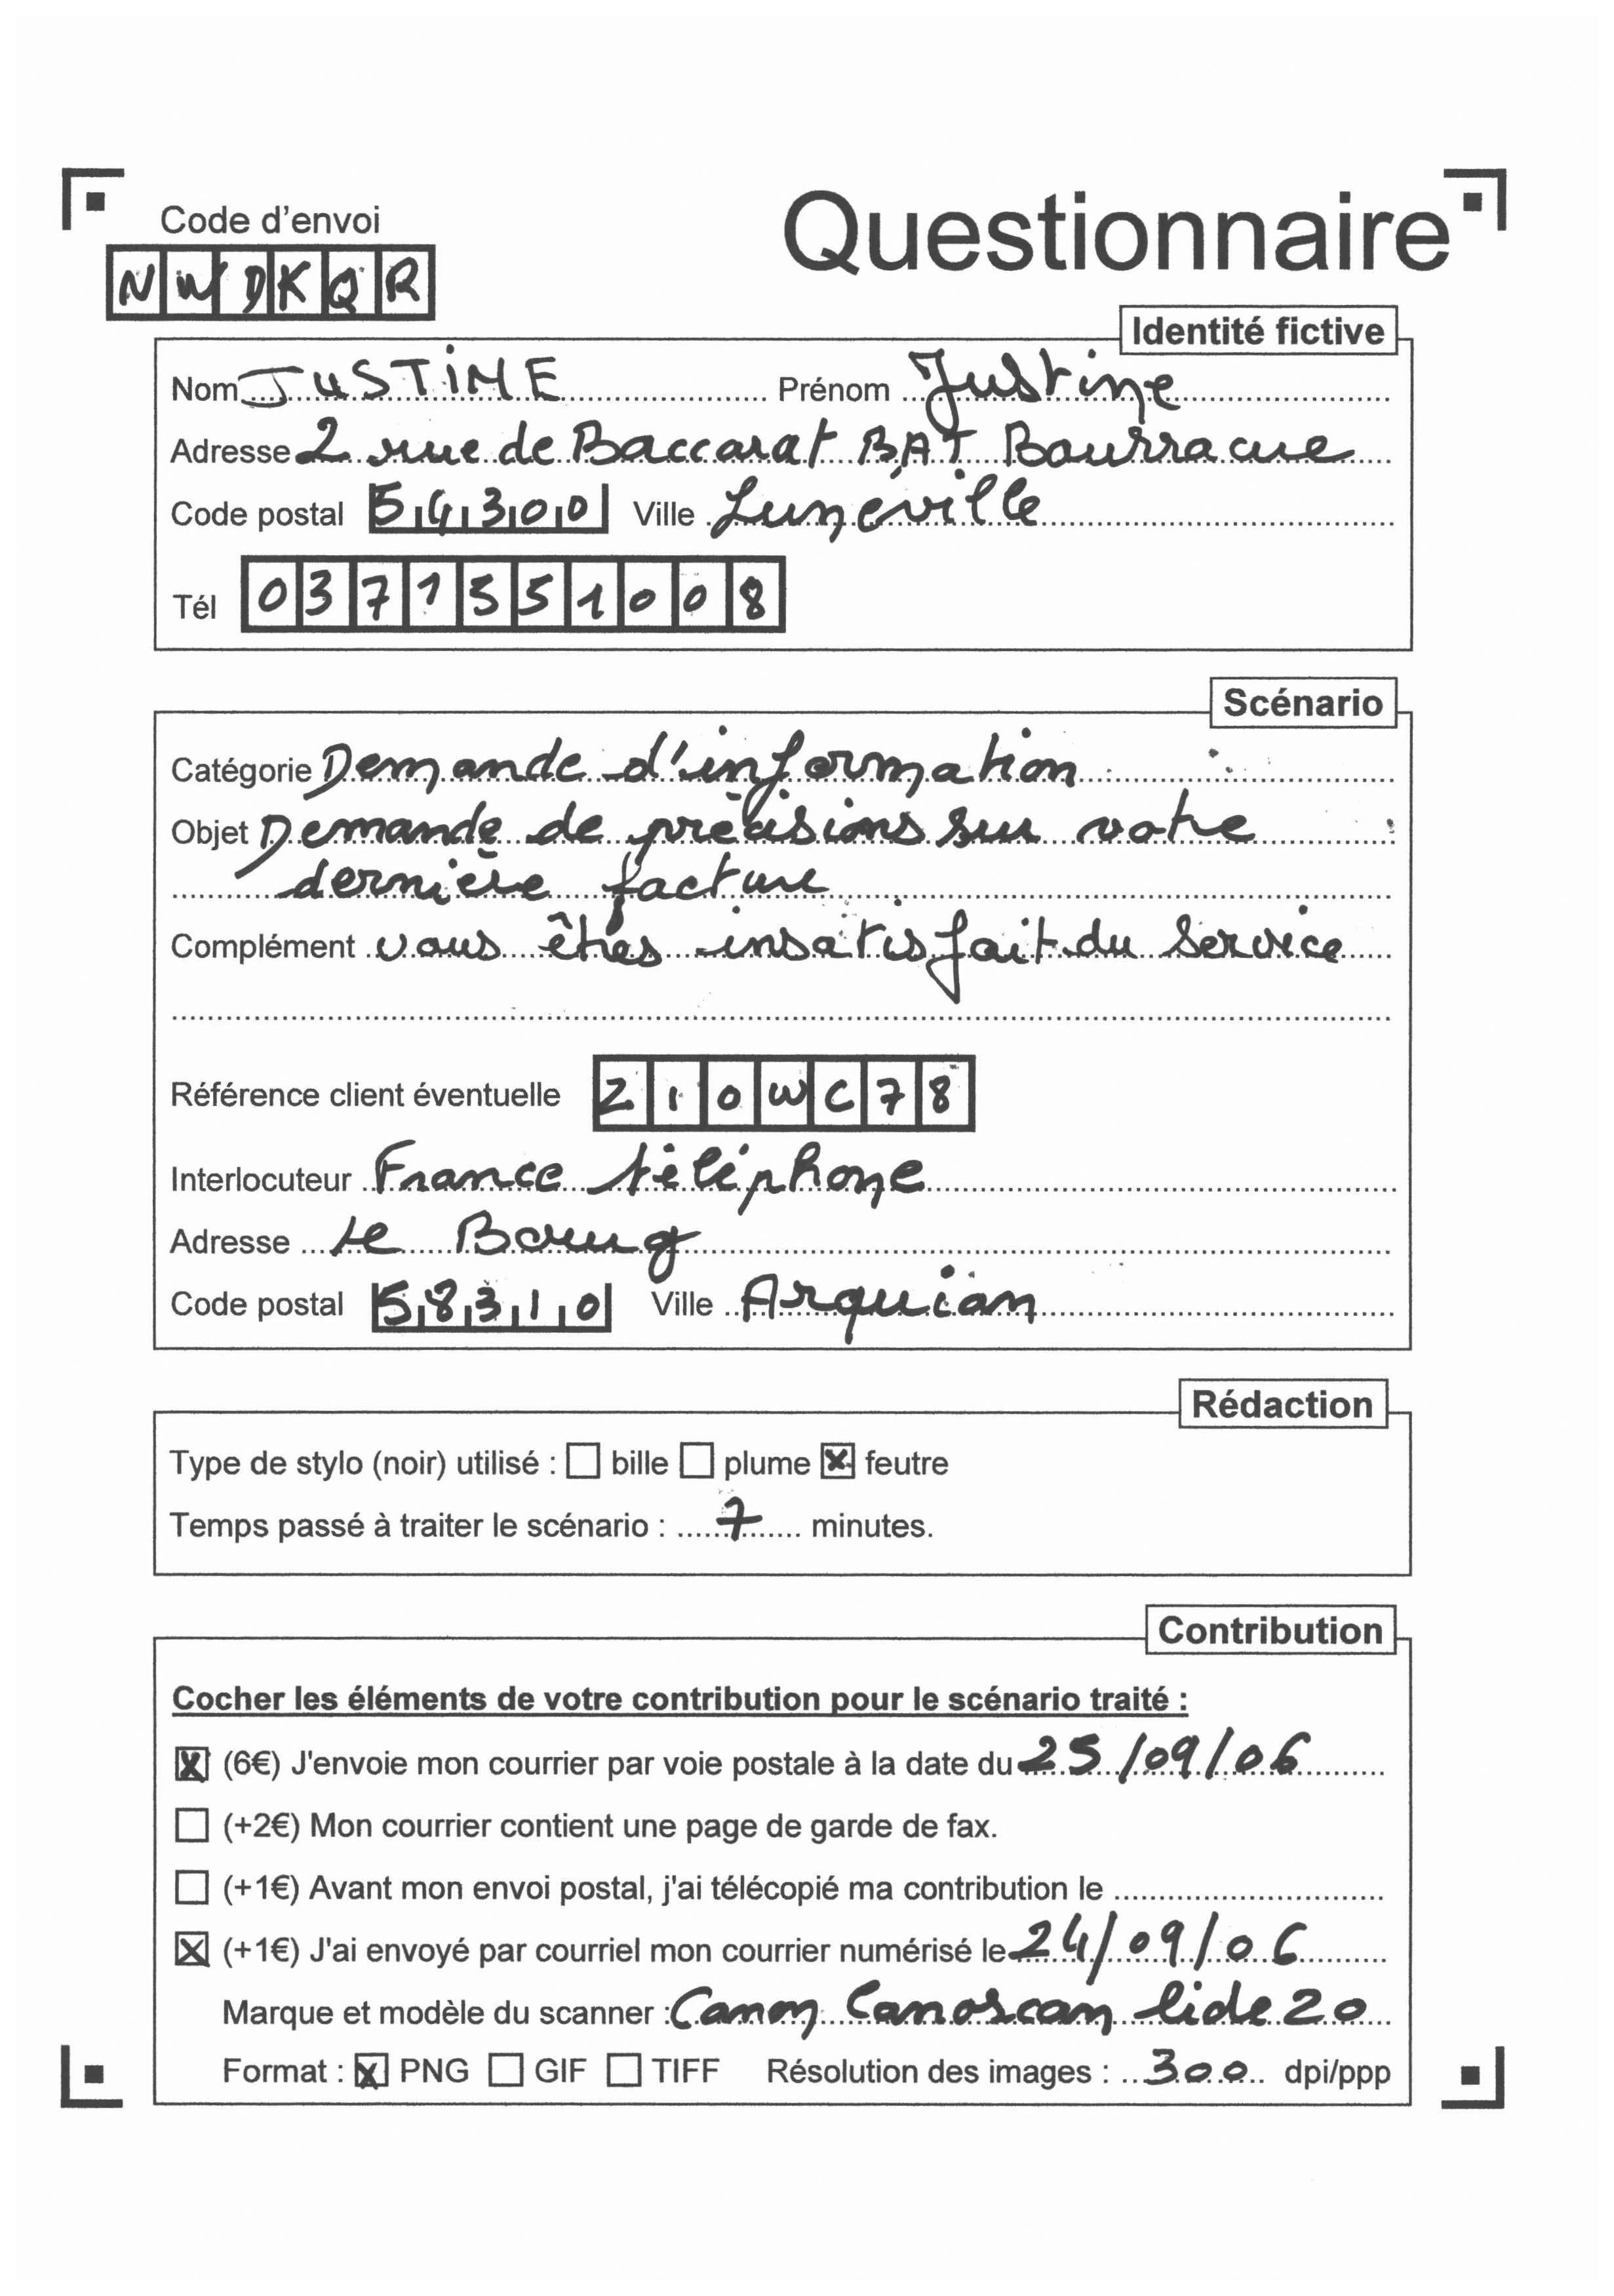 Code d'envoi
Questionnaire
NWDKQR
Identité fictive
Nom JUSTINE Prénom Justine
Adresse 2 rue de Baccarat BAT
Code postal 54300 Ville Lunéville
Tél 0371551008
Scénario
Catégorie Demande d'information
Objet Demande de précisions sur votre
dernière facture
Complément vous êtes insatisfait du service
Référence client éventuelle Z10WC78
Interlocuteur France téléphone
Adresse Le Bourg
Code postal 58310 Ville Arquian
Rédaction
Type de stylo (noir) utilisé : ☐ bille ☐ plume ☒ feutre
Temps passé à traiter le scénario : 7 minutes.
Contribution
Cocher les éléments de votre contribution pour le scénario traité :
☒ (6€) J'envoie mon courrier par voie postale à la date du 25/09/06
☐ (+2€) Mon courrier contient une page de garde de fax.
☐ (+1€) Avant mon envoi postal, j'ai télécopié ma contribution le
☒ (+1€) J'ai envoyé par courriel mon courrier numérisé le 24/09/06
Marque et modèle du scanner : Canon Canoscan lide 20
Format : ☒ PNG ☐ GIF ☐ TIFF Résolution des images : 300 dpi/ppp